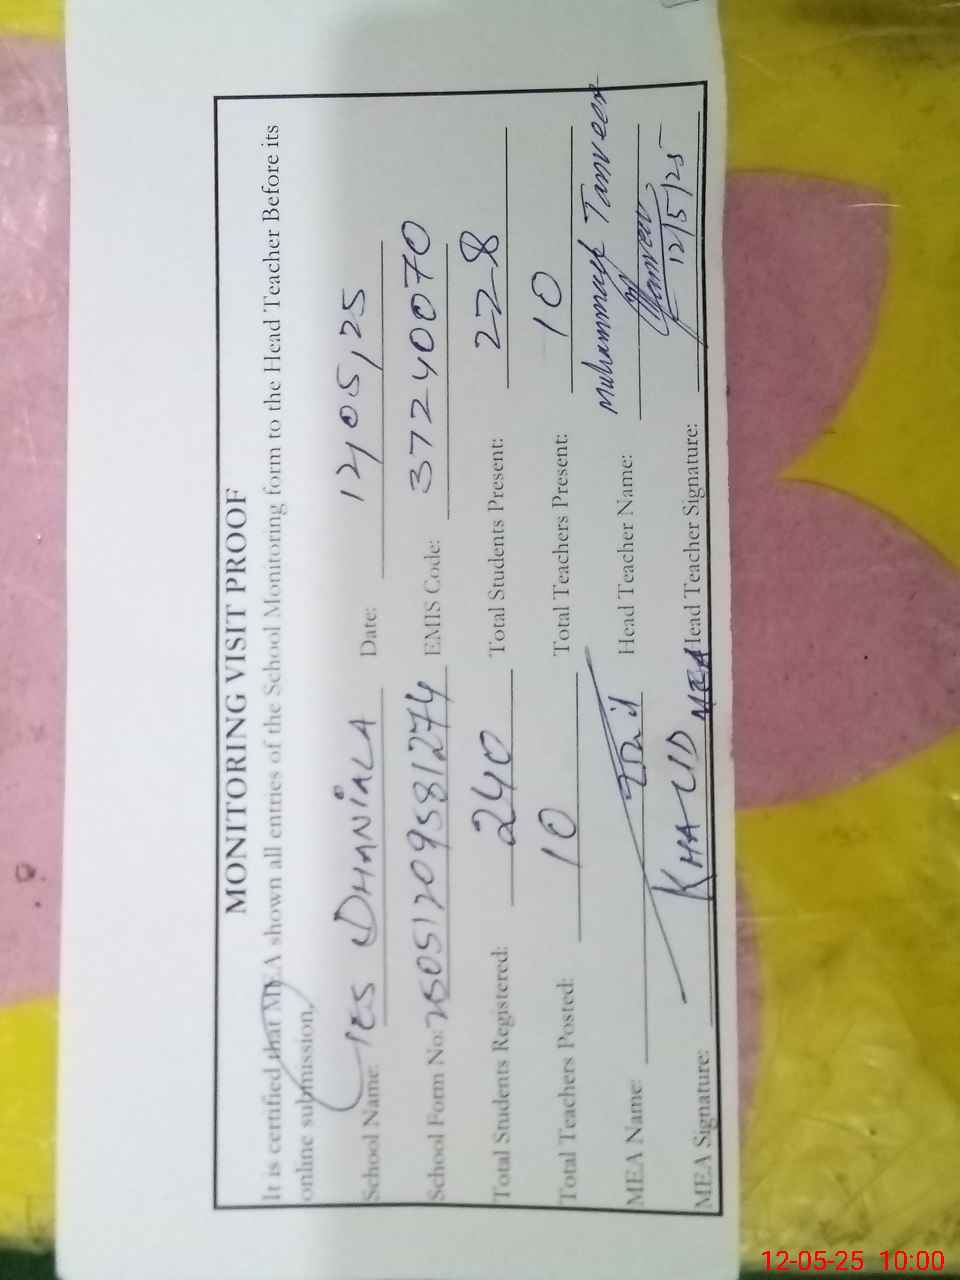 MONITORING VISIT PROOF
It is certified that MEA shown all entries of the School Monitoring form to the Head Teacher Before its
online submission.
School Name: GES DHANIALA Date: 12,05,25
School Form No: 25051209581274 EMIS Code: 37240070
Total Students Registered: 240 Total Students Present: 228
Total Teachers Posted: 10 Total Teachers Present: 10
MEA Name: Head Teacher Name: Muhammad Tanveer
MEA Signature: KHALID MEA Head Teacher Signature: Tanveer
12/5/25
12-05-25 10:00